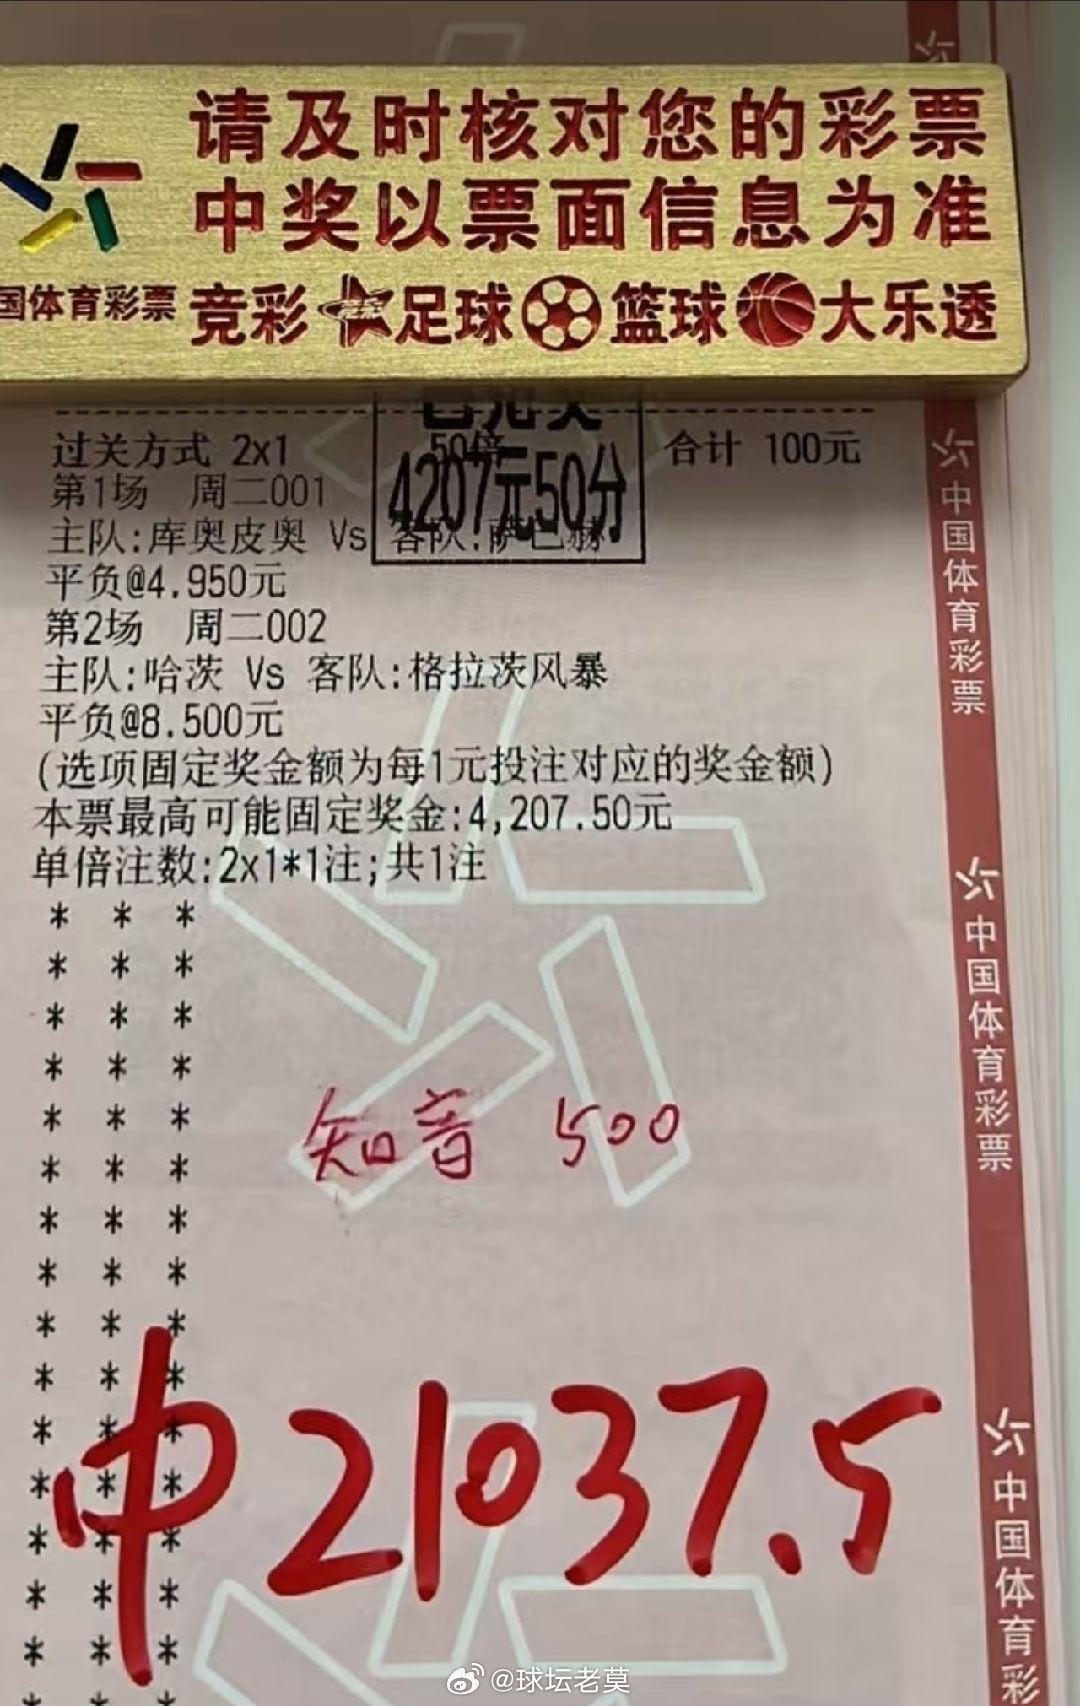 请及时核对您的彩票
中奖以票面信息为准
国体育彩票 竞彩 足球 篮球 大乐透
过关方式 2x1 50倍 合计 100元
4207元50分
第1场 周二001
主队:库奥皮奥 Vs 客队:萨巴赫
平负@4.950元
第2场 周二002
主队:哈茨 Vs 客队:格拉茨风暴
平负@8.500元
(选项固定奖金额为每1元投注对应的奖金额)
本票最高可能固定奖金:4,207.50元
单倍注数:2x1*1注;共1注
* * *
* * *
* * *
* * *
* * *
* * *
* * *
* * *
* * *
* * *
* * *
* * *
* * *
* * *
* * *
知音 500
中21037.5
中国体育彩票
中国体育彩票
中国体育彩
@球坛老莫